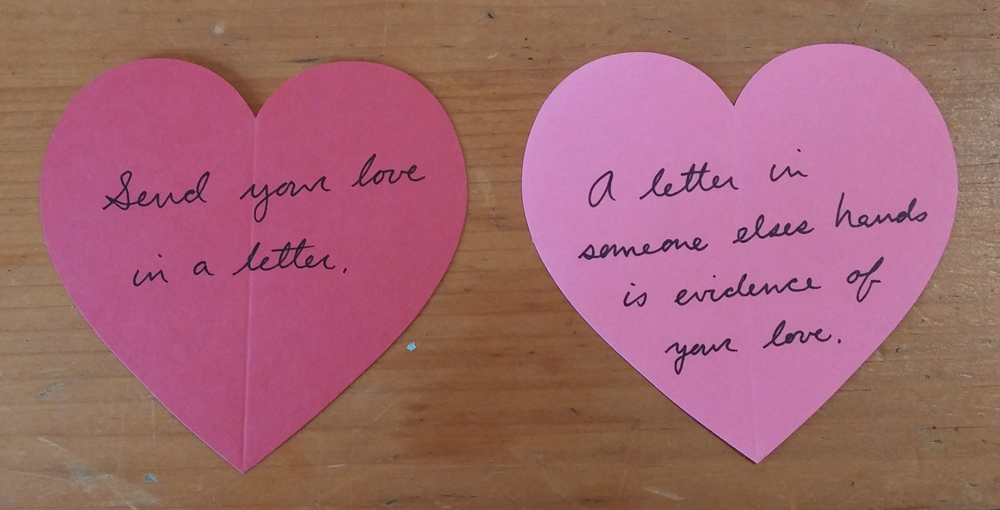 Send your love
in a letter.
A letter in
someone elses hands
is evidence of
your love.